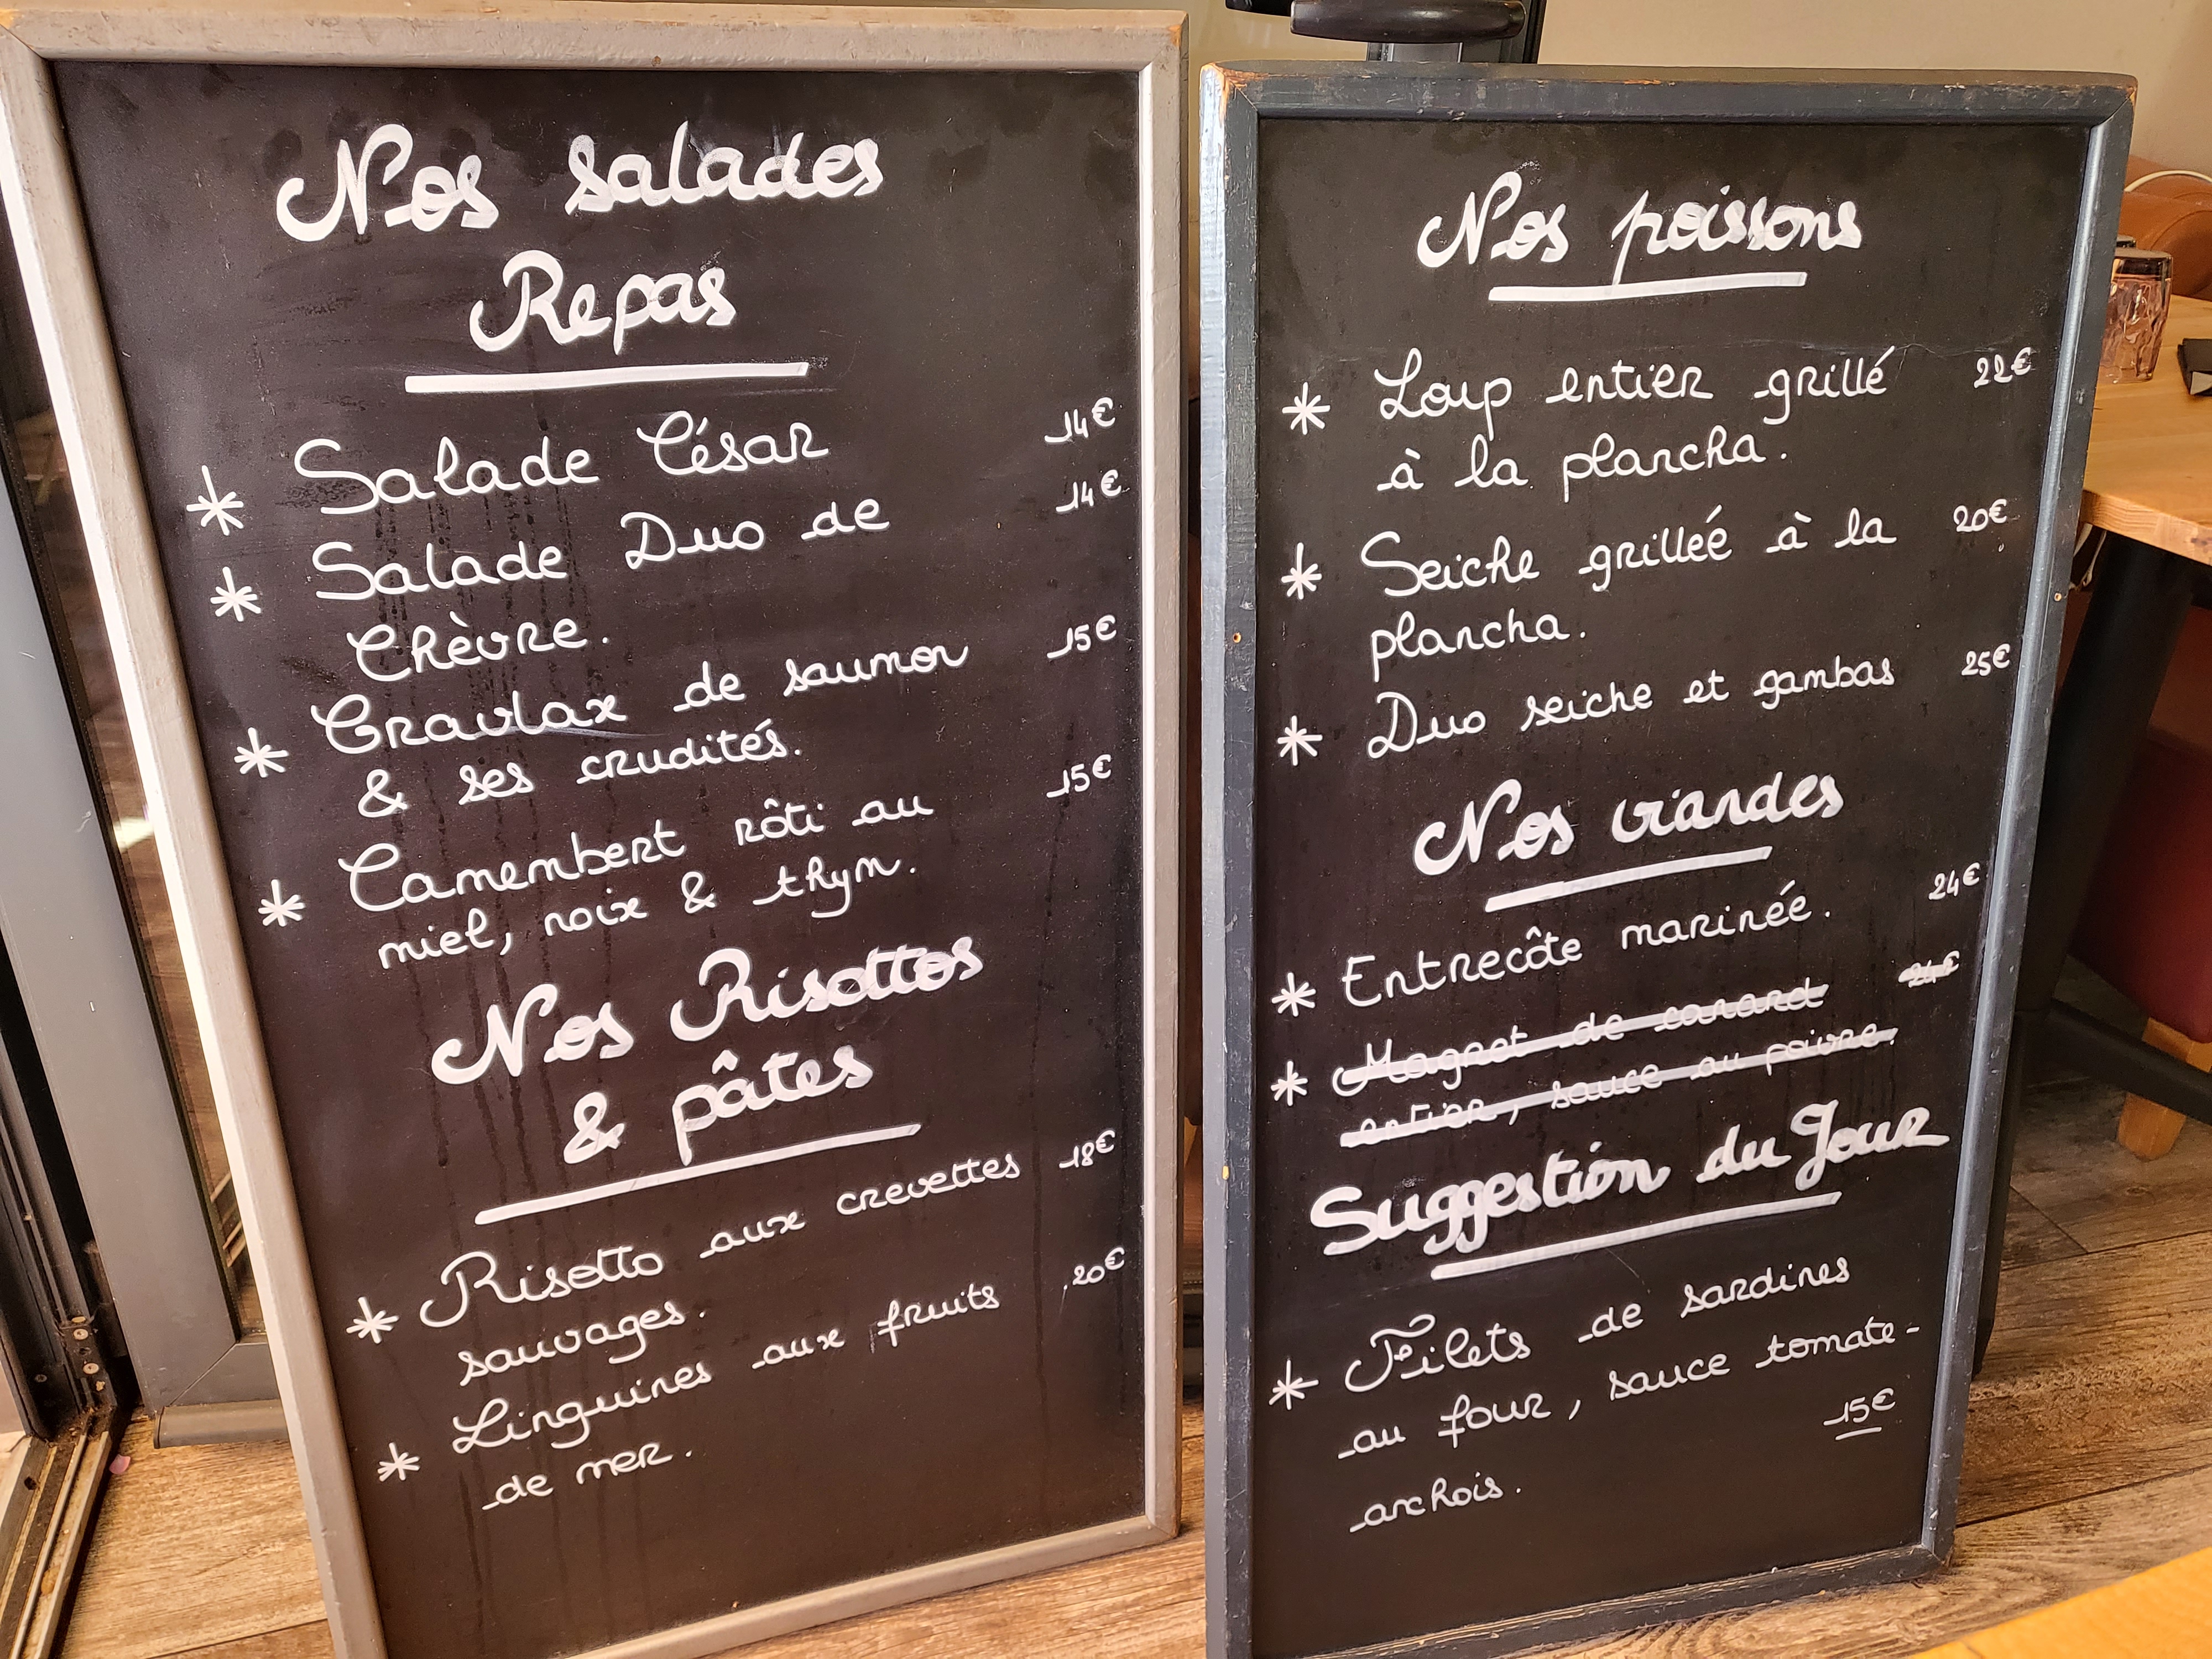 Nos salades
Repas
* Salade César 14€
* Salade Duo de 14€
Chèvre.
* Gravlax de saumon 15€
& ses crudités.
* Camembert rôti au 15€
miel, noix & thym.
Nos Risottos
& pâtes
* Risotto aux crevettes 18€
sauvages.
* Linguines aux fruits 20€
de mer.
Nos poissons
* Loup entier grillé 22€
à la plancha.
* Seiche grillée à la 20€
plancha.
* Duo seiche et gambas 25€
Nos viandes
* Entrecôte marinée. 24€
* Magret de canard
entier, sauce au poivre.
Suggestion du Jour
* Filets de sardines
au four, sauce tomate-
15€
anchois.